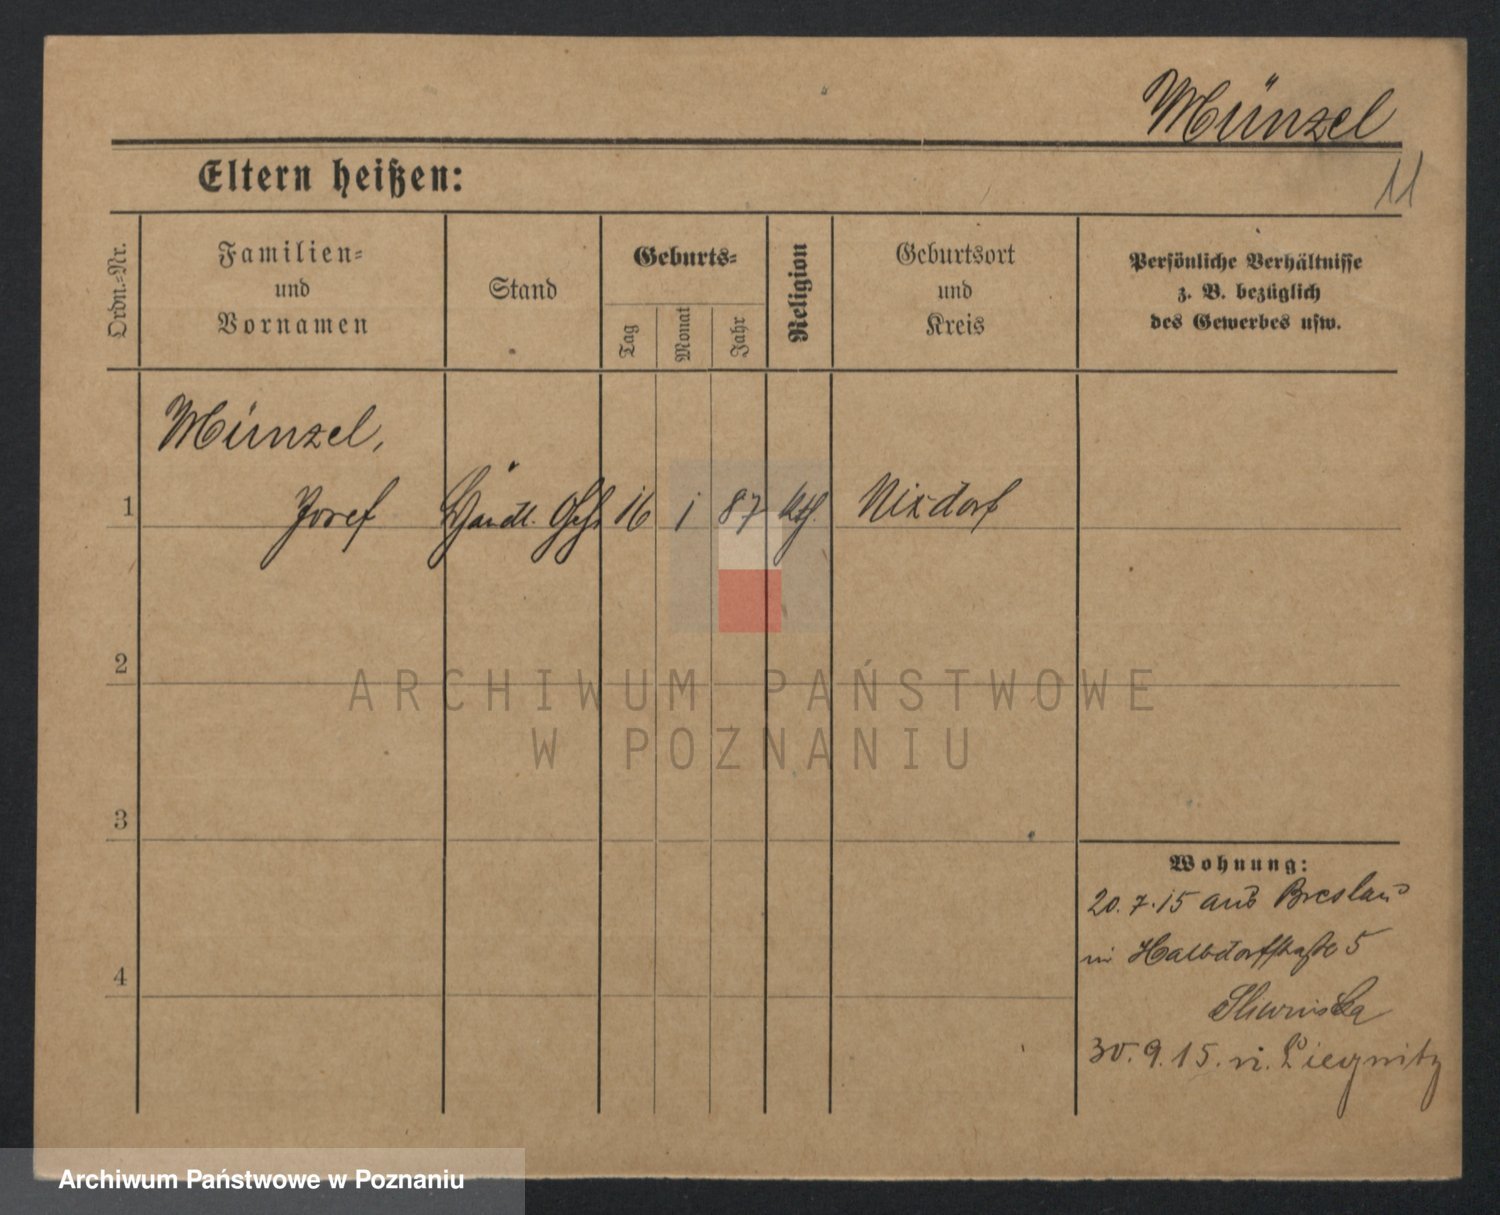 Münzel
11
Eltern heißen:
Ordn.-Nr.
Familien-
und
Vornamen
Stand
Geburts-
Tag
Monat
Jahr
Religion
Geburtsort
und
Kreis
Persönliche Verhältnisse
z. B. bezüglich
des Gewerbes usw.
Münzel,
1 Josef Handl. Geh. 16 1 87 kth. Nixdorf
2
3
4
Wohnung:
20.7.15 aus Breslau
Halbdorfstraße 5
Sliwinska
30.9.15. n. Liegnitz
ARCHIWUM PAŃSTWOWE
W POZNANIU
Archiwum Państwowe w Poznaniu